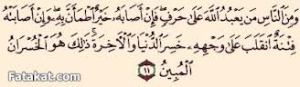 وَمِنَ ٱلنَّاسِ مَن يَعْبُدُ ٱللَّهَ عَلَىٰ حَرْفٍ ۖ فَإِنْ أَصَابَهُۥ خَيْرٌ ٱطْمَأَنَّ بِهِۦ ۖ وَإِنْ أَصَابَتْهُ
فِتْنَةٌ ٱنقَلَبَ عَلَىٰ وَجْهِهِۦ خَسِرَ ٱلدُّنْيَا وَٱلْـَٔاخِرَةَ ۚ ذَٰلِكَ هُوَ ٱلْخُسْرَانُ
ٱلْمُبِينُ ١١
Fatakat.com